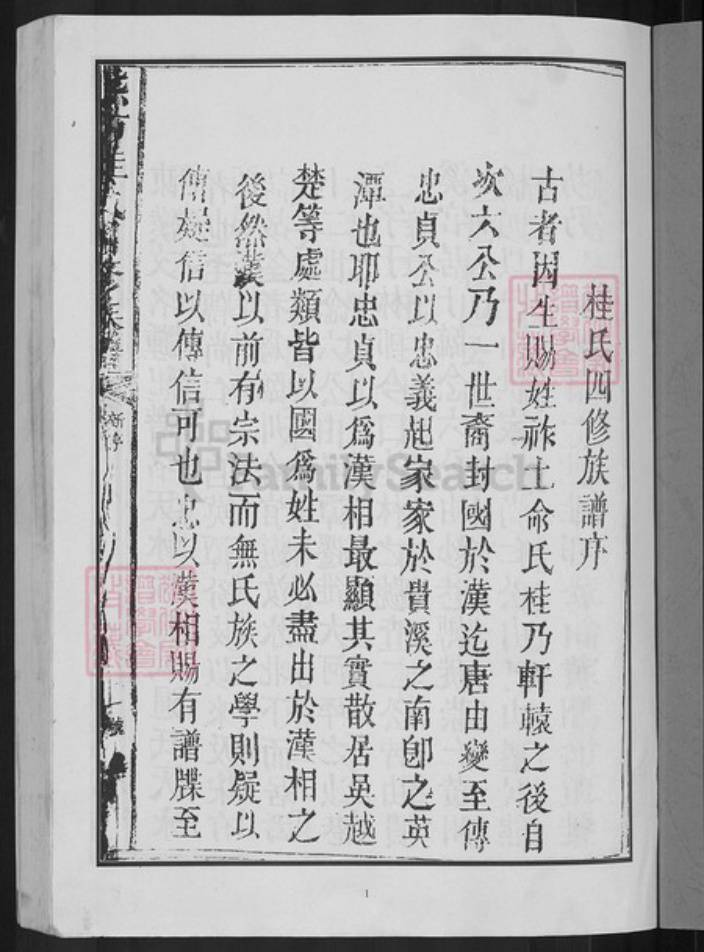 桂氏四修族譜序
古者因生賜姓祚土命氏桂乃軒轅之後自
次六公乃一世裔封國於漢迄唐由燮至傳
忠貞公以忠義起家家於貴溪之南卽之英
潭也耶忠貞以爲漢相最顯其實散居吳越
楚等處類皆以國爲姓未必盡出於漢相之
後然漢以前有宗法而無氏族之學則疑以
傳疑信以傳信可也忠以漢相賜有譜牒至
FamilySearch
1